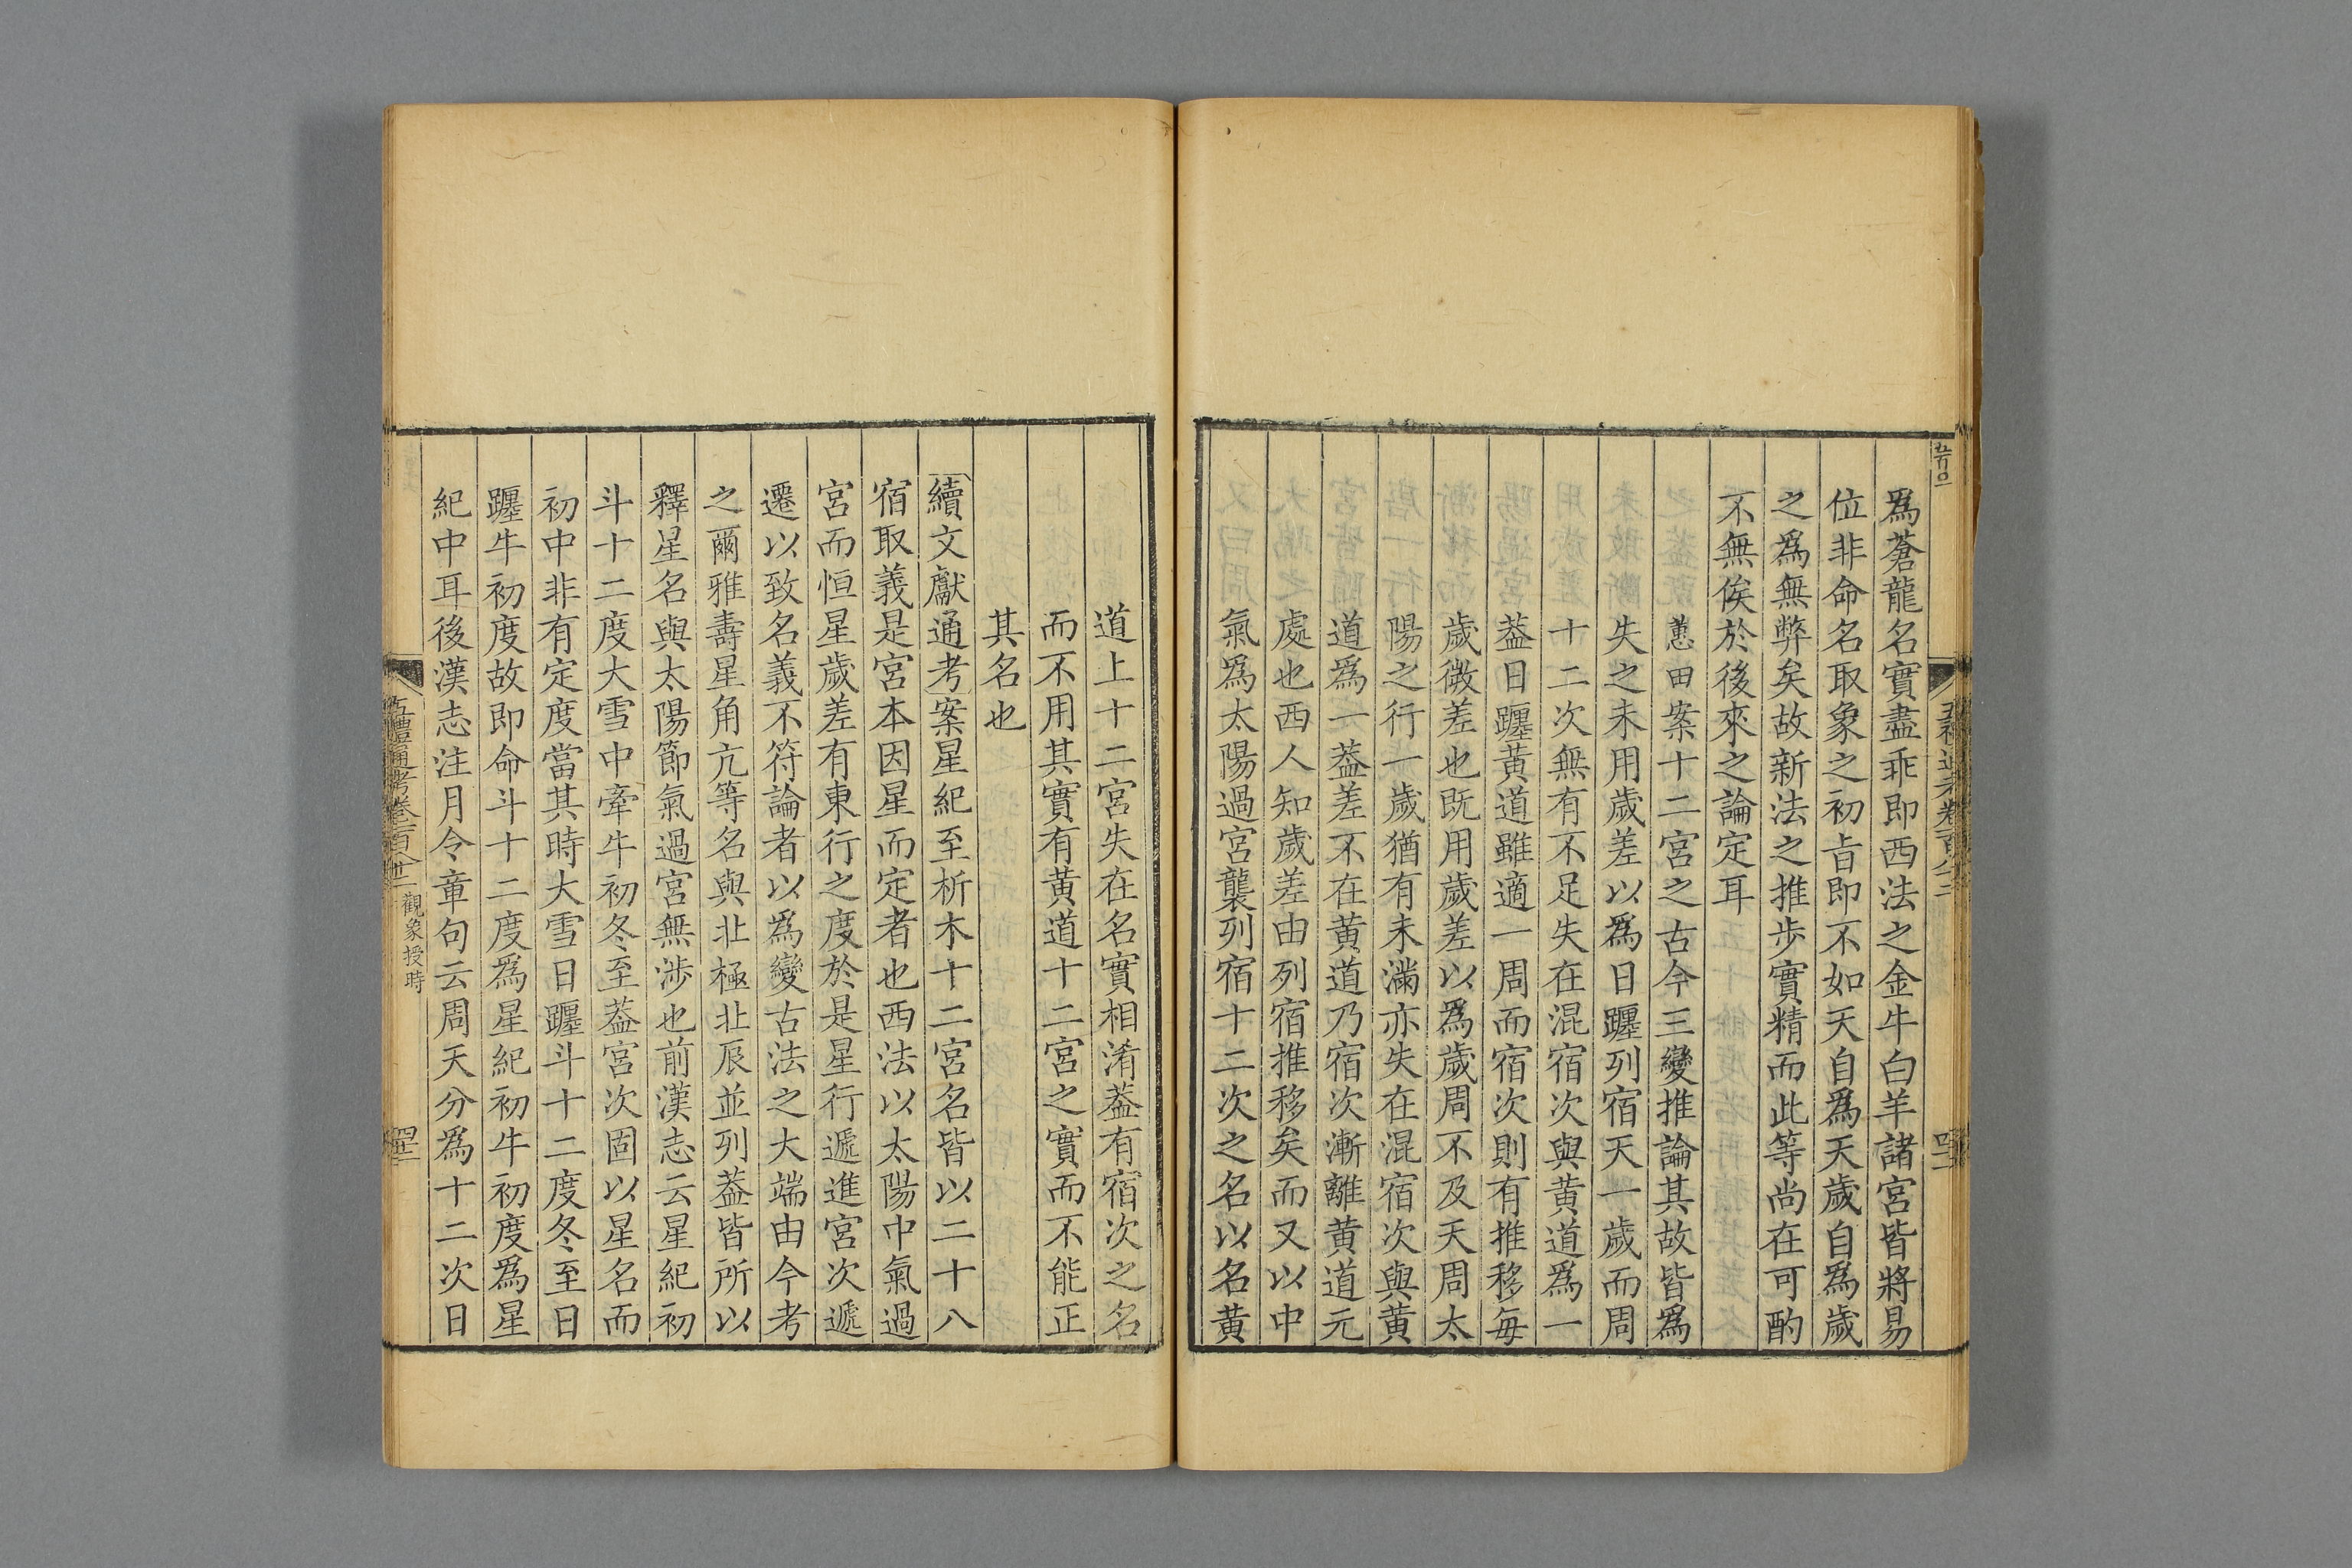 爲蒼龍名實盡乖即西法之金牛白羊諸宮皆將易
位非命名取象之初㫖即不如天自爲天歲自爲歲
之爲無弊矣故新法之推步實精而此等尚在可酌
不無俟於後來之論定耳
蕙田案十二宮之古今三變推論其故皆爲
失之未用歲差以爲日躔列宿天一歲而周
十二次無有不足失在混宿次與黄道爲一
葢日躔黄道雖適一周而宿次則有推移每
歲微差也既用歲差以爲歲周不及天周太
陽之行一歲猶有未滿亦失在混宿次與黄
道爲一葢差不在黄道乃宿次漸離黄道元
處也西人知歲差由列宿推移矣而又以中
氣爲太陽過宮襲列宿十二次之名以名黄
道上十二宮失在名實相淆葢有宿次之名
而不用其實有黄道十二宮之實而不能正
其名也
續文獻通考案星紀至析木十二宮名皆以二十八
宿取義是宮本因星而定者也西法以太陽中氣過
宮而恒星歲差有東行之度於是星行遞進宮次遞
遷以致名義不符論者以爲變古法之大端由今考
之爾雅壽星角亢等名與北極北辰並列葢皆所以
釋星名與太陽節氣過宮無涉也前漢志云星紀初
斗十二度大雪中牽牛初冬至葢宮次固以星名而
初中非有定度當其時大雪日躔斗十二度冬至日
躔牛初度故即命斗十二度爲星紀初牛初度爲星
紀中耳後漢志注月令章句云周天分爲十二次日
五禮通考卷一百八十二
觀象授時